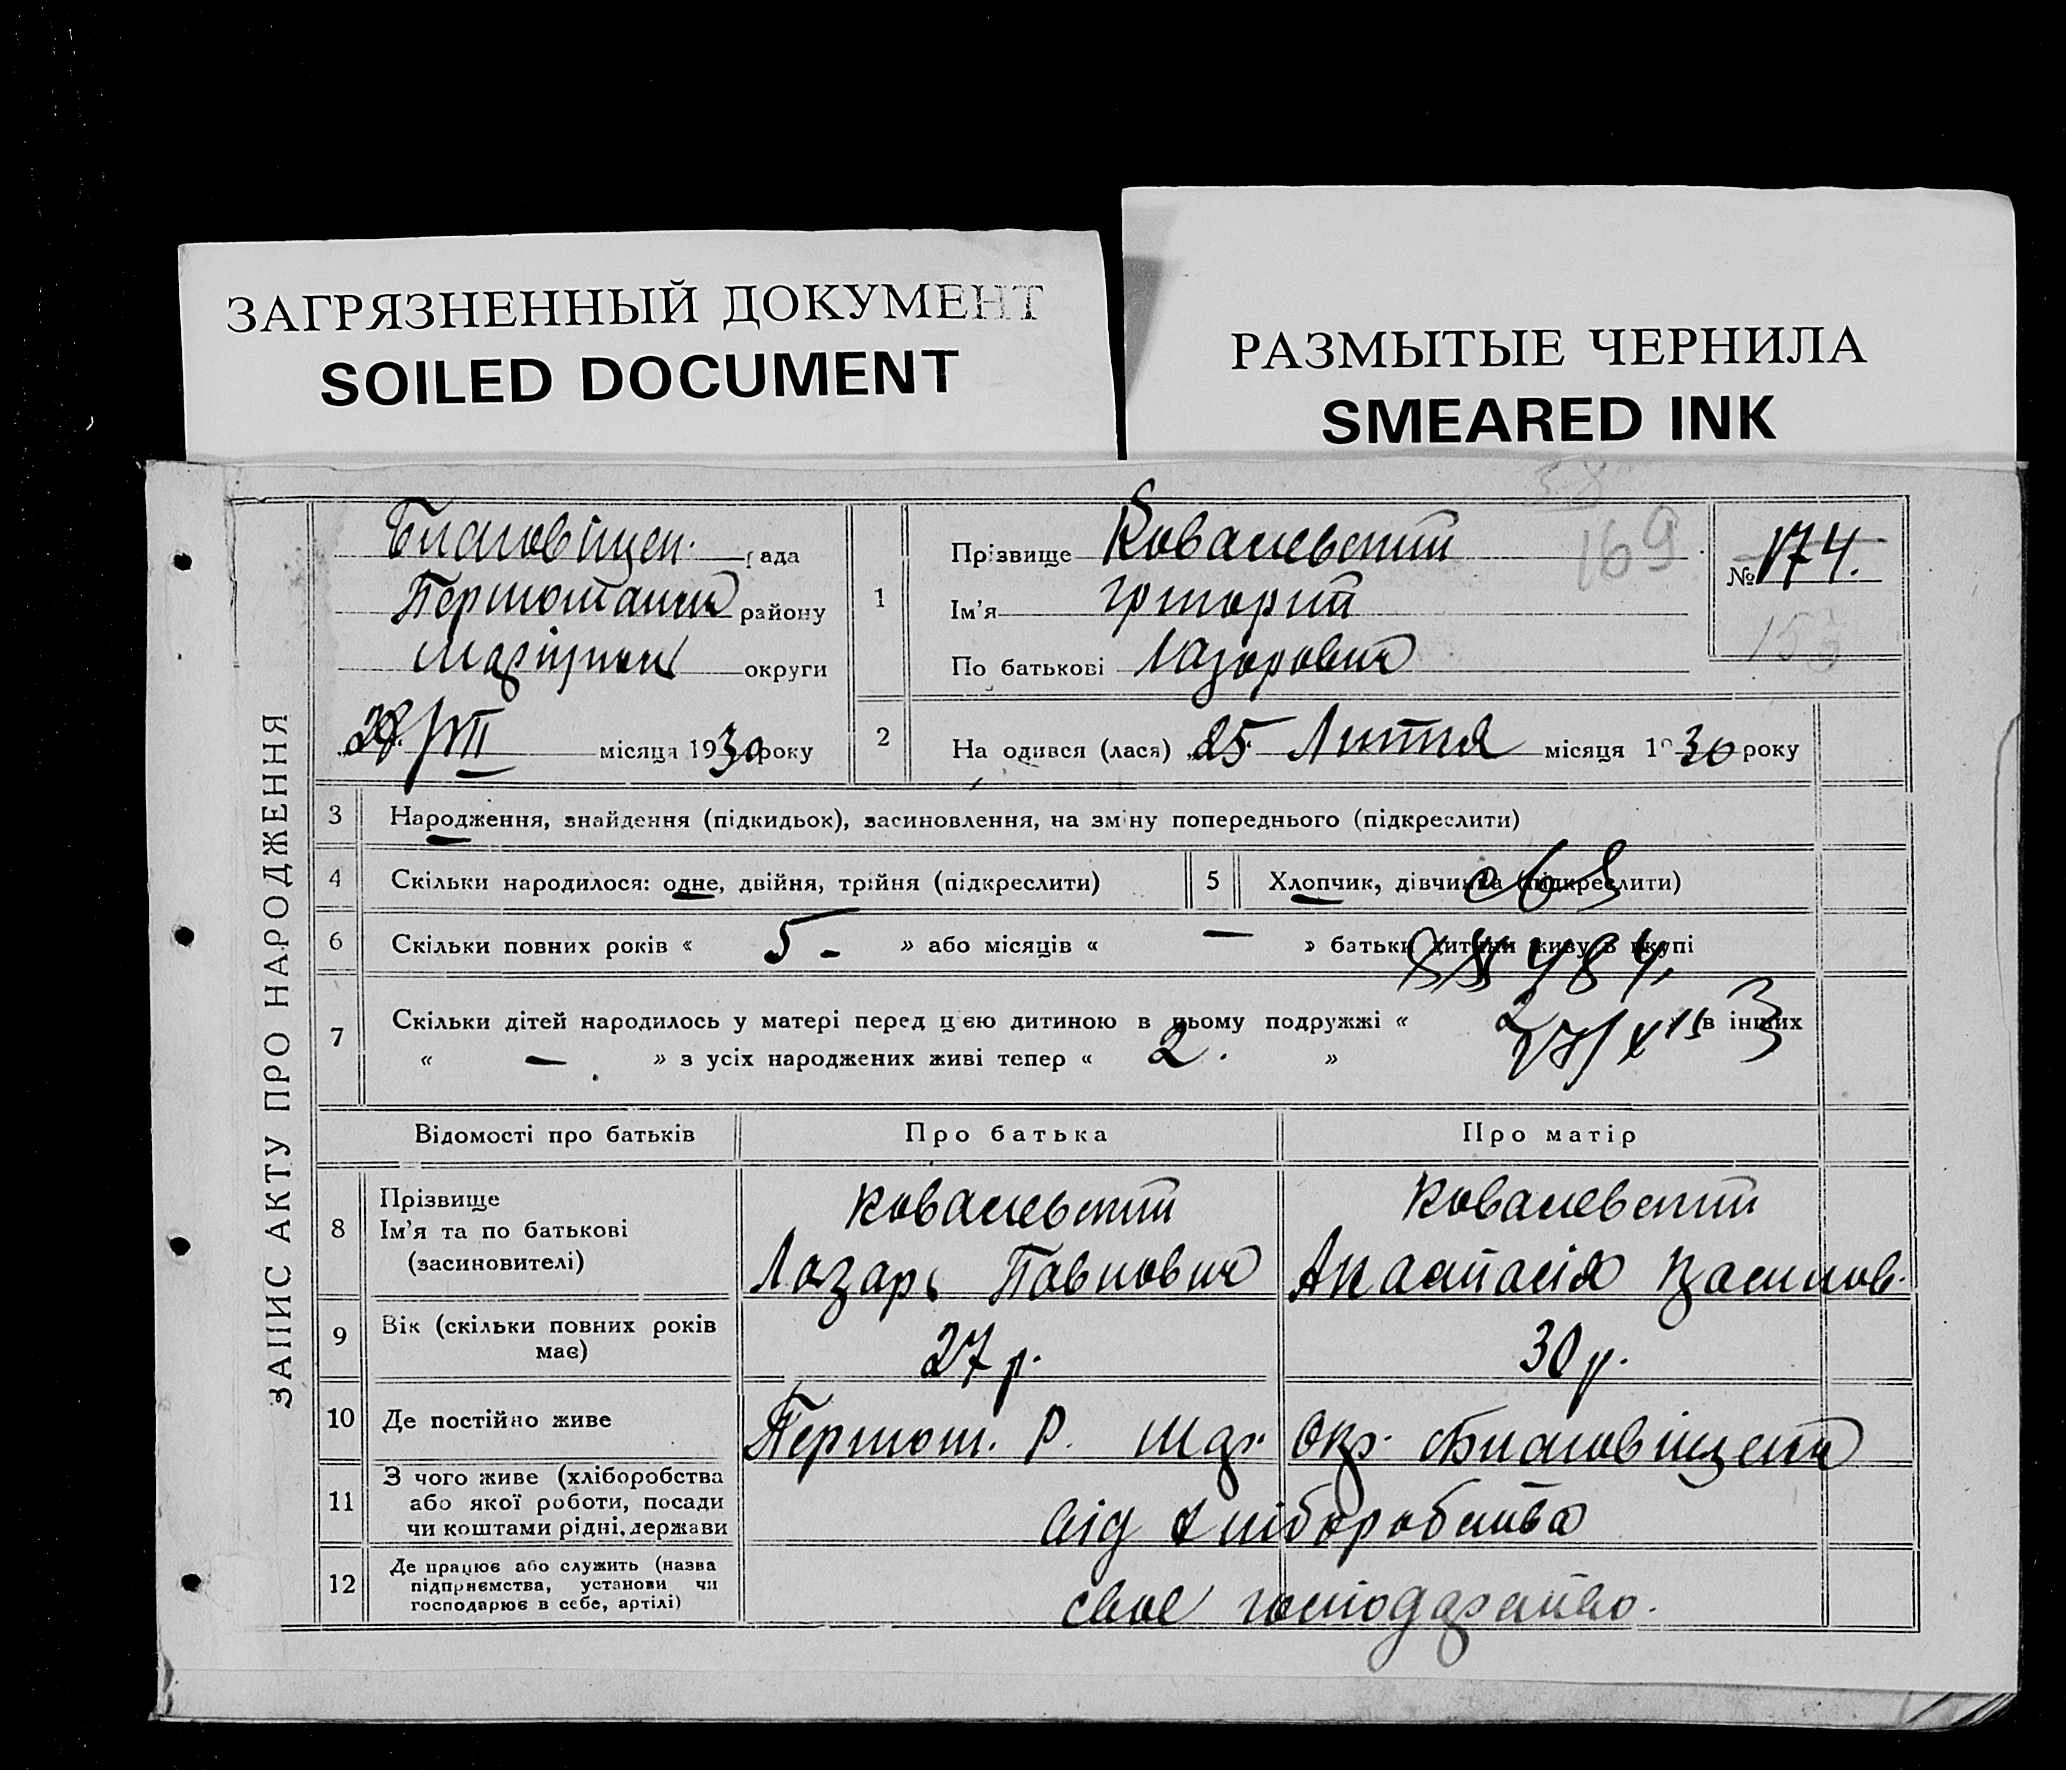 ЗАГРЯЗНЕННЫЙ ДОКУМЕНТ
SOILED DOCUMENT
РАЗМЫТЫЕ ЧЕРНИЛА
SMEARED INK
38
169
ЗАПИС АКТУ ПРО НАРОДЖЕННЯ
рада
району
округи
VII місяця 1930 року
1
Прізвище Ковалевський
Ім'я Григорий
По батькові Лазарович
№ 174.
153
2
Народився (лася) „25 Лютня місяця 1930 року
3 Народження, знайдення (підкидьок), засиновлення, на зміну попереднього (підкреслити)
4 Скільки народилося: одне, двійня, трійня (підкреслити)
5 Хлопчик, дівчинка (підкреслити)
6 Скільки повних років « 5 - » або місяців « — » батьки дитини живуть вкупі
7 Скільки дітей народилось у матері перед цією дитиною в цьому подружжі « 2 в інших
« — » з усіх народжених живі тепер « 2. »
Відомості про батьків
Про батька
Про матір
8 Прізвище
Ім'я та по батькові
(засиновителі)
Ковалевський
Лазарь Павлович
Ковалевський
Анастасія Василов.
9 Вік (скільки повних років
має)
27 р.
30 р.
10 Де постійно живе
Окр.
11 З чого живе (хліборобства
або якої роботи, посади
чи коштами рідні, держави
від хліборобства
12 Де працює або служить (назва
підприємства, установи чи
господарює в себе, артілі)
своє господарство.